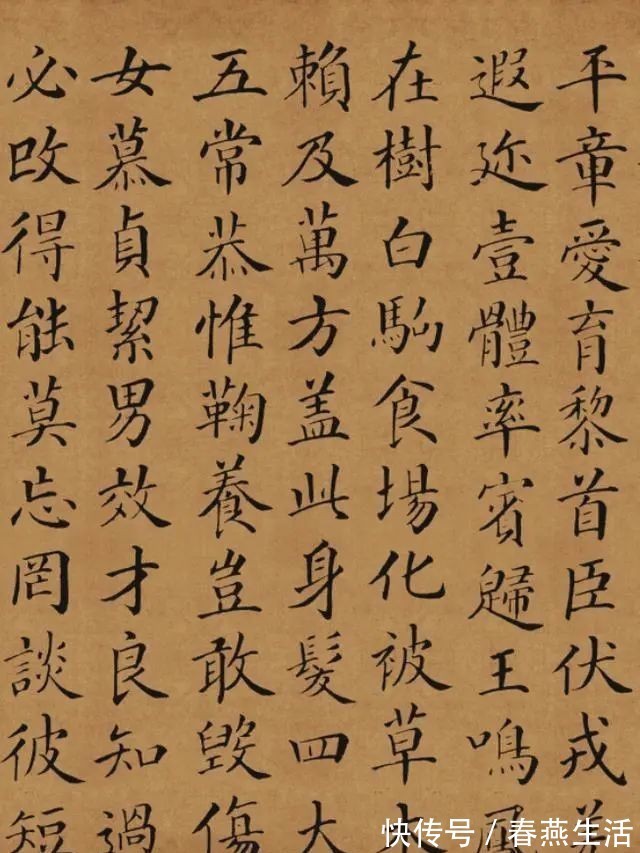 平章愛育黎首臣伏戎
遐迩壹體率賓歸王鳴
在樹白駒食場化被草
賴及萬方盖此身髮四大
五常恭惟鞠養豈敢毀傷
女慕貞絜男效才良知過
必改得能莫忘罔談彼短
快传号 / 春燕生活